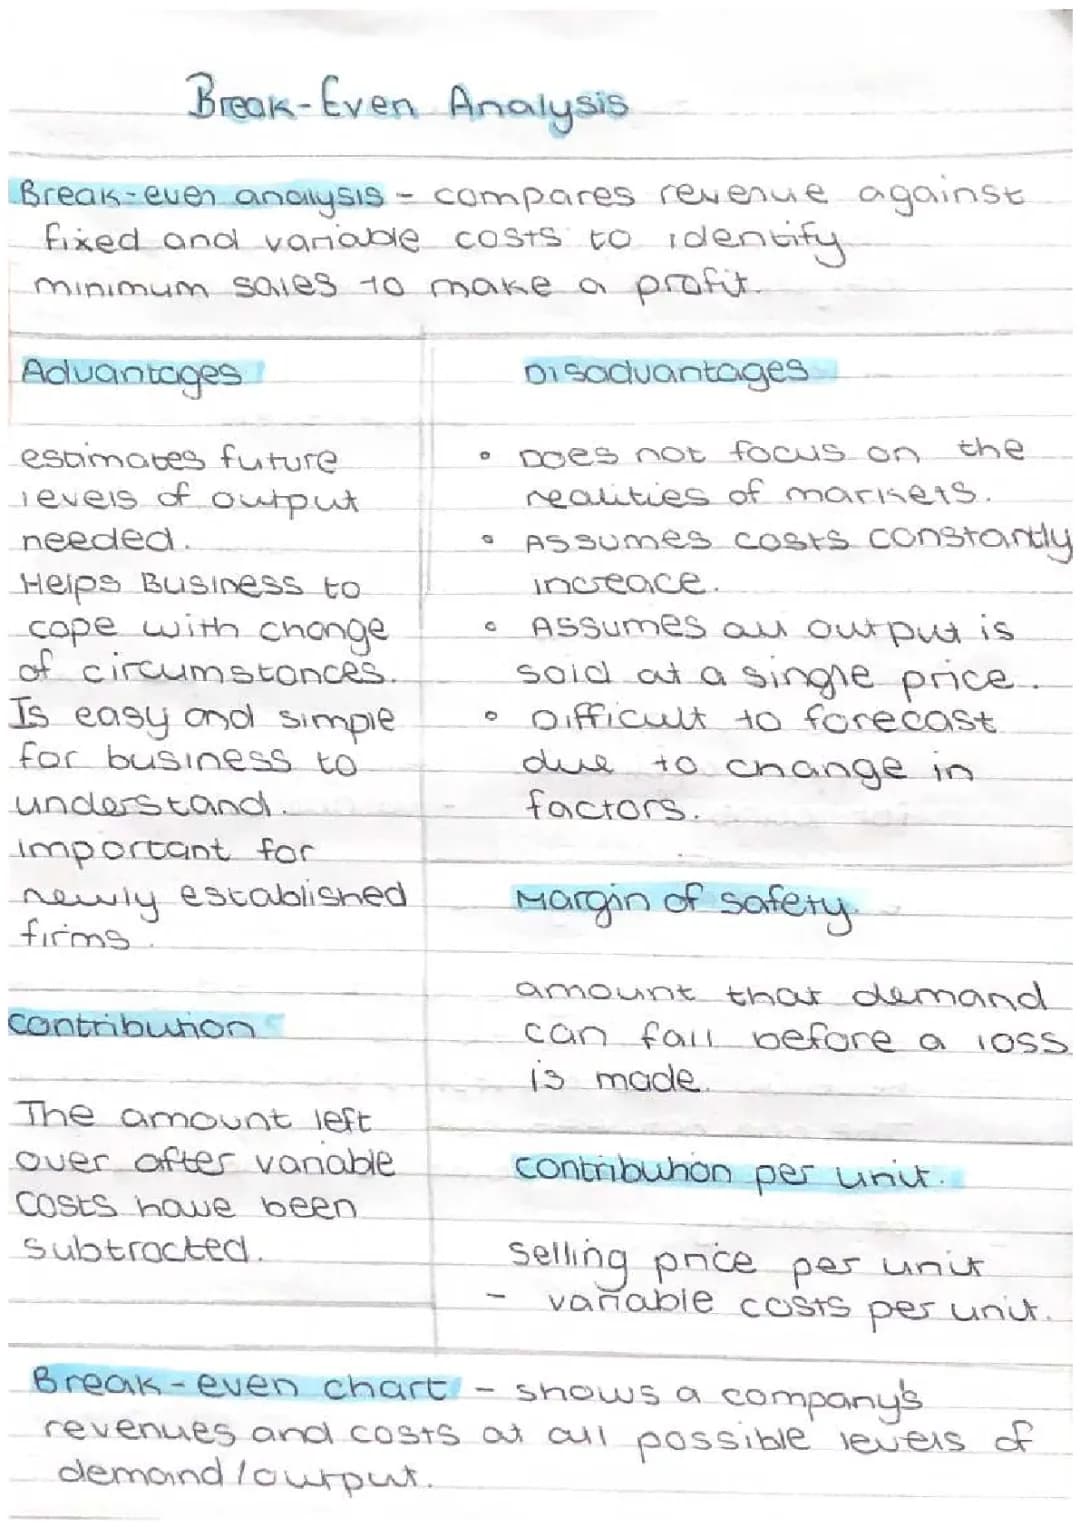 Break-Even Analysis
Break-even analysis - compares revenue against
fixed and variable costs to identify
minimum sales to make a profit.
Advantages
estimates future
levels of output
needed.
Helps Business to
cope with change
of circumstances.
Is easy and simple
for business to
understand.
important for
newly established
firms.
Contribution
The amount left
over after variable
costs have been
subtracted.
Disadvantages
• Does not focus on the
realities of markets.
• Assumes costs constantly
increace.
• Assumes all output is
sold at a single price.
• Difficult to forecast
due to change in
factors.
Margin of safety.
amount that demand
can fall before a loss
is made.
contribution per unit.
Selling price per unit
- variable costs per unit.
Break-even chart - shows a company's
revenues and costs at all possible levels of
demand/output.